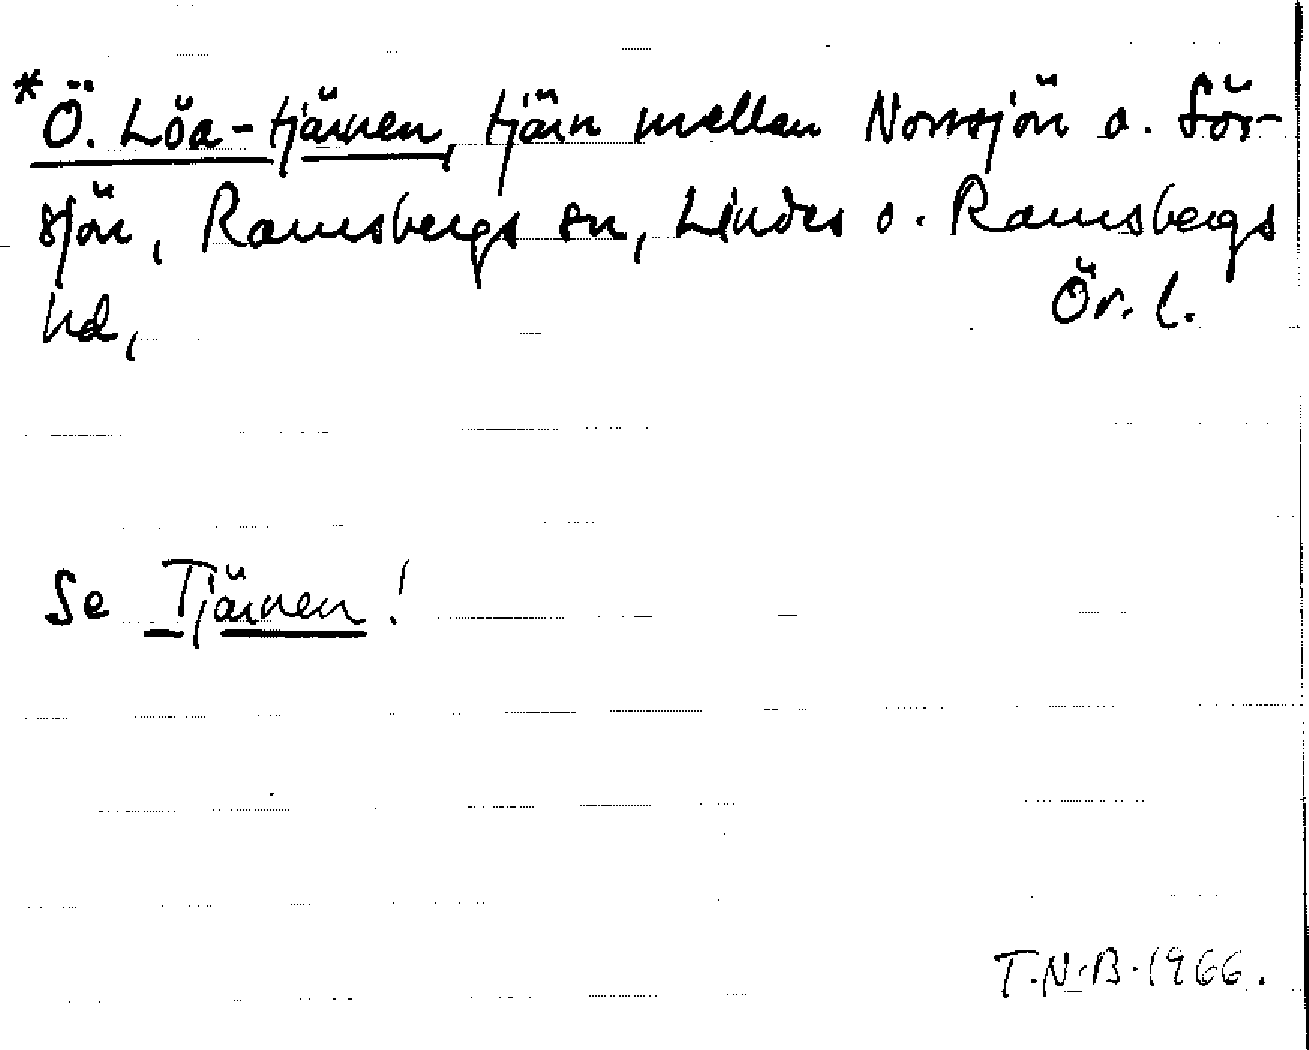 *Ö. Löa-tjärnen, tjärn mellan Norrsjön o. Sör-
sjön, Ramsbergs sn, Lindes o. Ramsbergs
hd, Ör. l.
Se Tjärnen!
T.N.B. 1966.